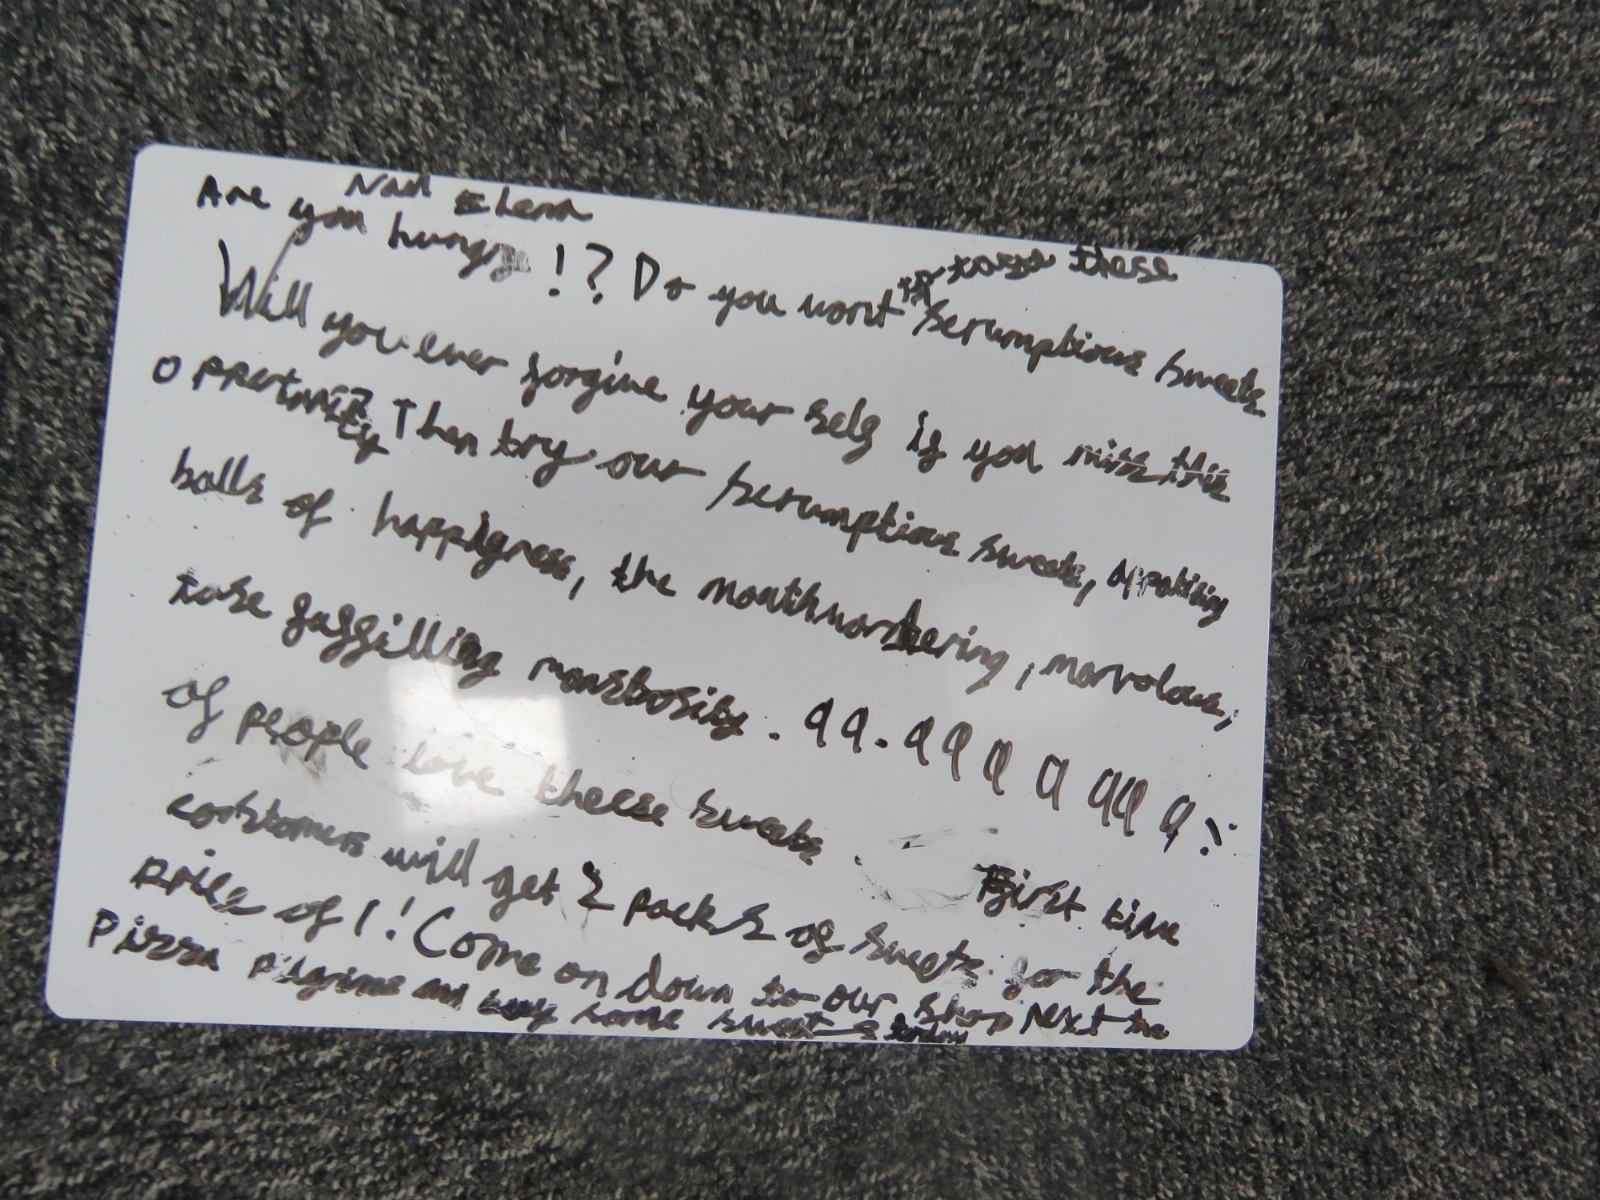 to taste these
Are you hungry!? Do you want scrumptious sweets
Will you ever forgive your self if you miss this
opportunity Then try our scrumptious sweets, appatising
balls of happyness, the mouthwartering, marvolous,
monstrosity. 99.9999999%
of people love theese sweets First time
costomers will get 2 packs of sweets for the
price of 1! Come on down to our shop next to
Pizza pilgrims and buy some sweets today